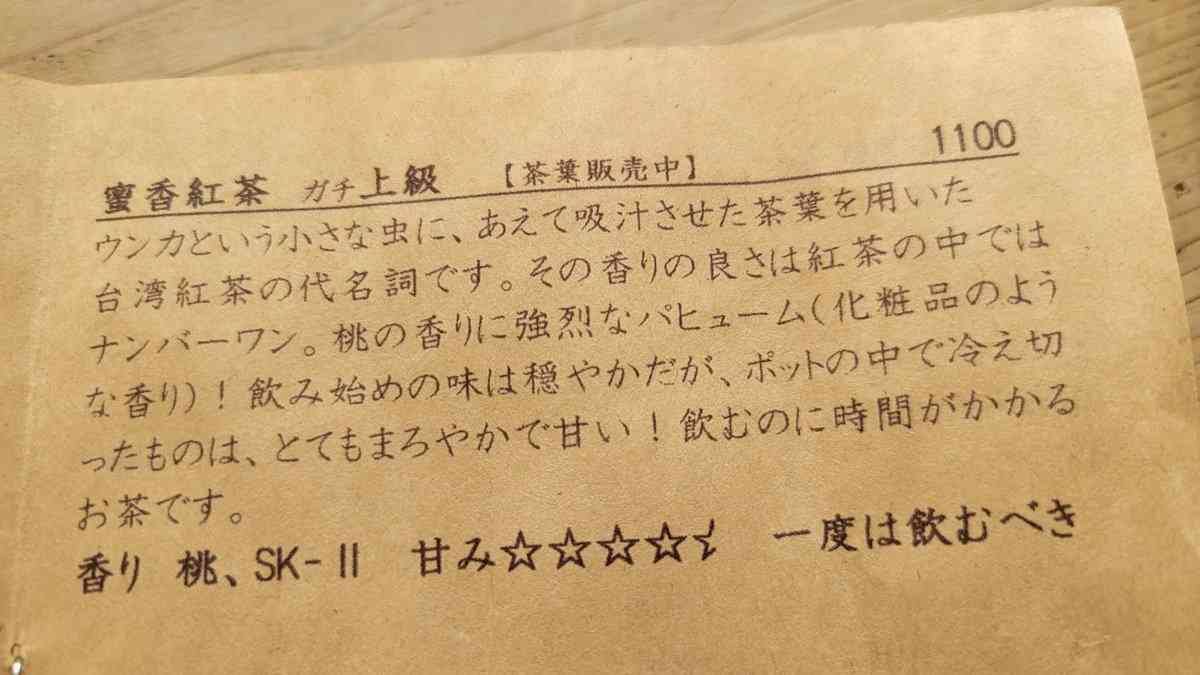 蜜香紅茶 ガチ上級 【茶葉販売中】 1100
ウンカという小さな虫に、あえて吸汁させた茶葉を用いた
台湾紅茶の代名詞です。その香りの良さは紅茶の中では
ナンバーワン。桃の香りに強烈なパヒューム(化粧品のよう
な香り)!飲み始めの味は穏やかだが、ポットの中で冷え切
ったものは、とてもまろやかで甘い!飲むのに時間がかかる
お茶です。
香り 桃、SK-II 甘み☆☆☆☆⯪ 一度は飲むべき